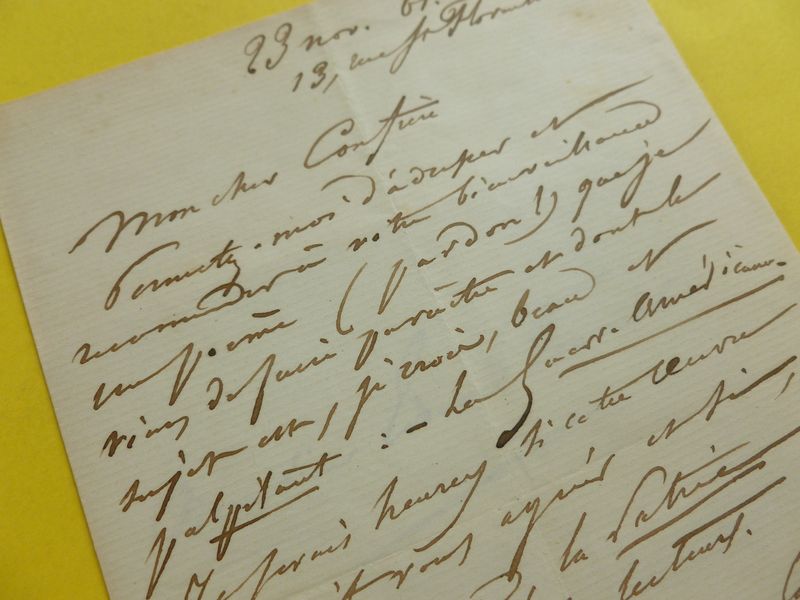 23 nov. 61.
13, rue St Florentin
Mon cher Confrère
Permettez-moi d'adresser et
recommander à votre bienveillance
un poème (pardon !) que je
viens de faire paraître et dont le
sujet est, je crois, beau et
palpitant : - La Guerre Américaine.
Je serais heureux si cette œuvre
vous agrée et si,
la Patrie
lecteurs.